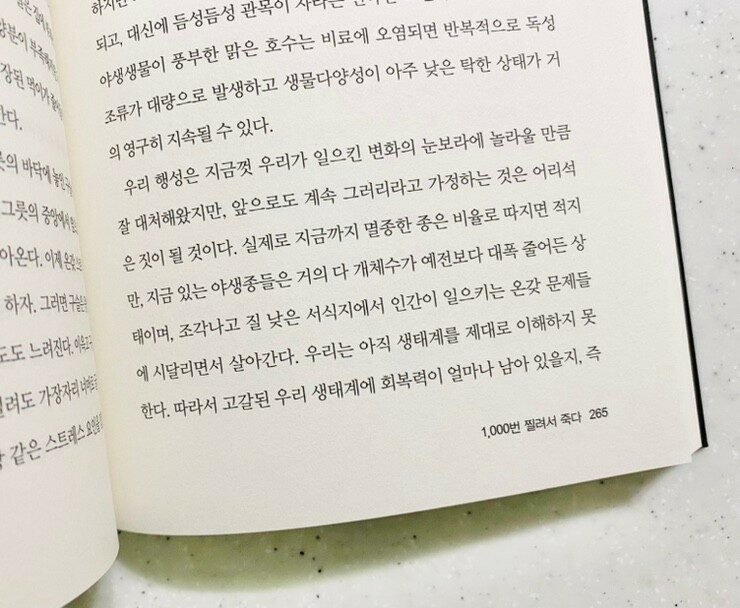 장된 먹이가
한다.
릇의 바닥에 놓인
그릇의 중앙에서
아온다. 이제 온갖
하자. 그러면 구슬은
도도 느려진다.
가장자리 너머로
같은 스트레스 요인을
하지만
되고, 대신에 듬성듬성 관목이 자라는
야생생물이 풍부한 맑은 호수는 비료에 오염되면 반복적으로 독성
조류가 대량으로 발생하고 생물다양성이 아주 낮은 탁한 상태가 거
의 영구히 지속될 수 있다.
우리 행성은 지금껏 우리가 일으킨 변화의 눈보라에 놀라울 만큼
잘 대처해왔지만, 앞으로도 계속 그러리라고 가정하는 것은 어리석
은 짓이 될 것이다. 실제로 지금까지 멸종한 종은 비율로 따지면 적지
만, 지금 있는 야생종들은 거의 다 개체수가 예전보다 대폭 줄어든 상
태이며, 조각나고 질 낮은 서식지에서 인간이 일으키는 온갖 문제들
에 시달리면서 살아간다. 우리는 아직 생태계를 제대로 이해하지 못
한다. 따라서 고갈된 우리 생태계에 회복력이 얼마나 남아 있을지, 즉
1,000번 찔려서 죽다 265